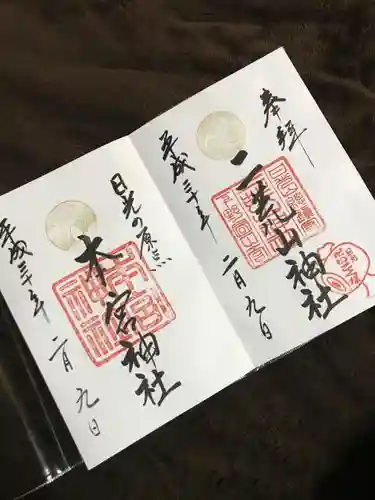 奉拝
二荒山神社
平成三十年
二月九日
日光の原点
本宮神社
平成三十年
二月九日